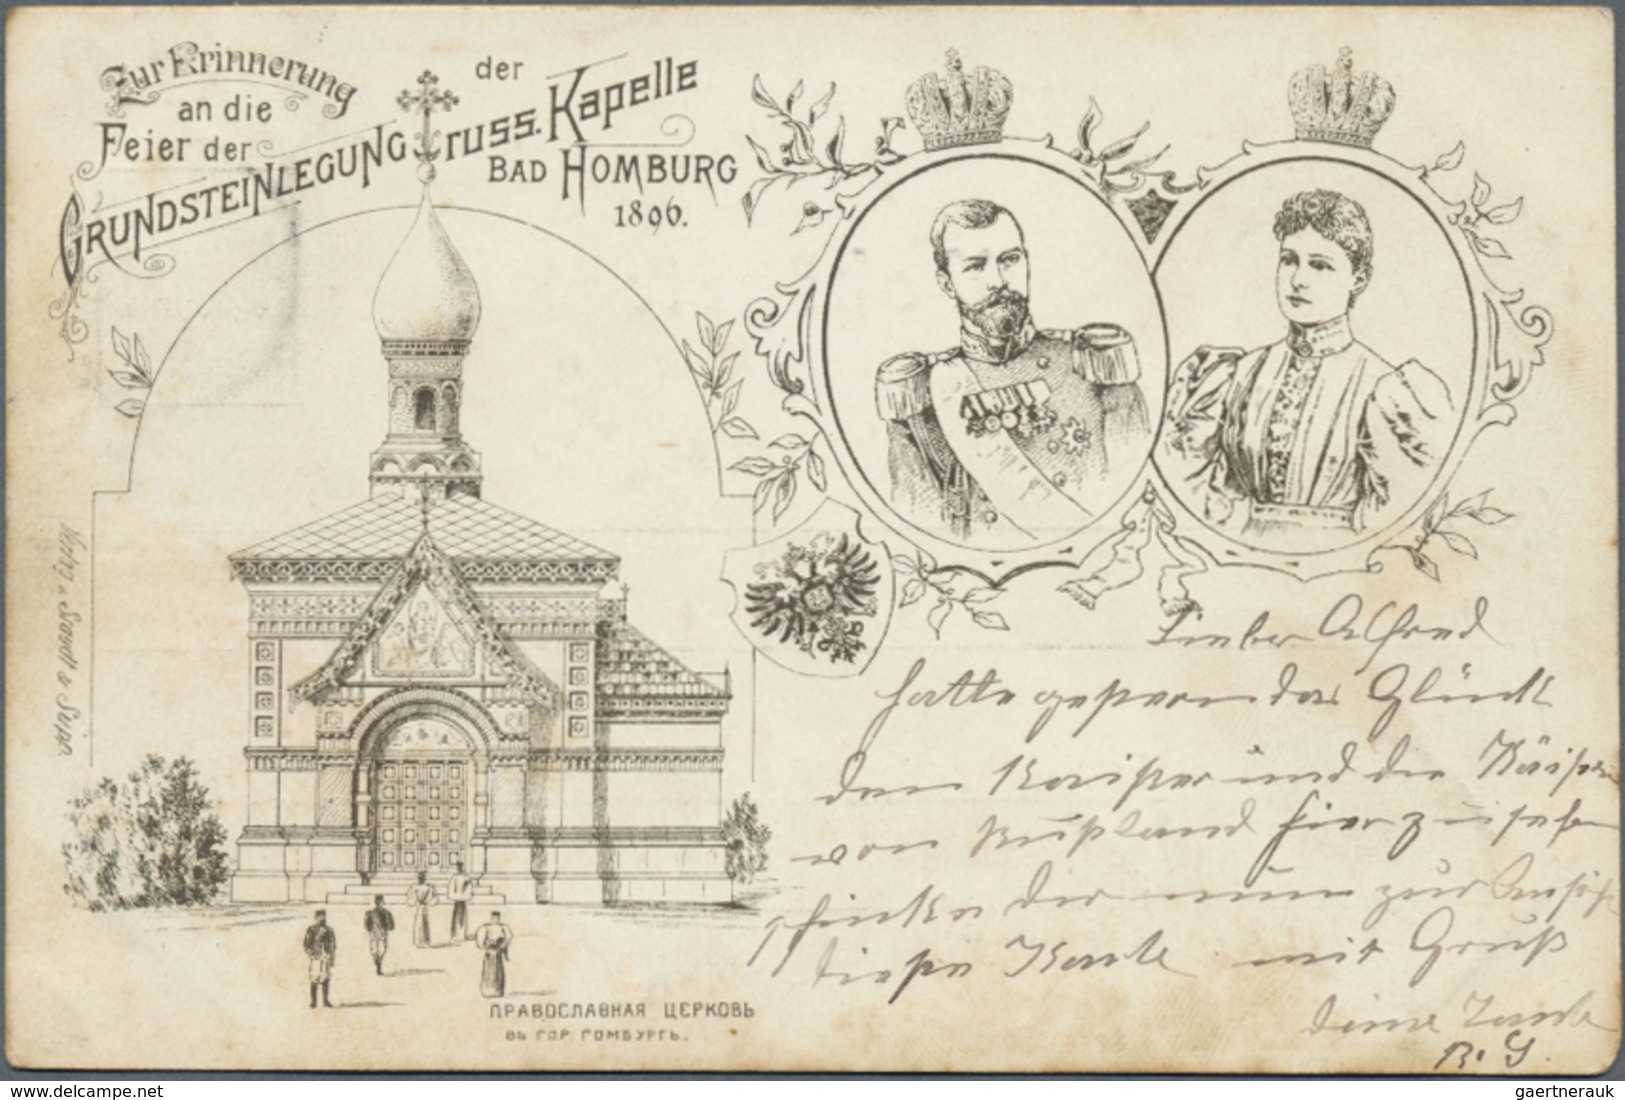 Zur Erinnerung
an die
Feier der
GRUNDSTEINLEGUNG
der
russ. Kapelle
BAD HOMBURG
1896.
Verlag v. & Supp.
ПРАВОСЛАВНАЯ ЦЕРКОВЬ
ВЪ ГОР. ГОМБУРГѢ.
Lieber Alfred
hatte gestern das Glück
den Kaiser und die Kaiserin
von Rußland hier zu sehen
schicke dir nun zur Ansicht
diese Karte mit Gruß
deine Tante
B. S.
www.delcampe.net
gaertnerauk